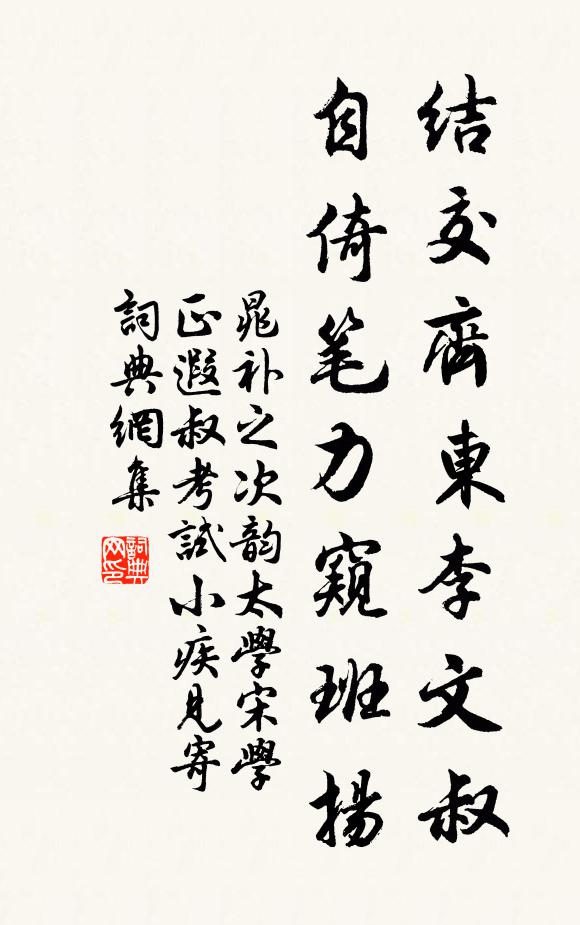 結交齊東李文叔
自倚笔力窺班揚
晁补之次韵太學宋學
正遐叔考試小疾見寄
詞典網集
詞典网印